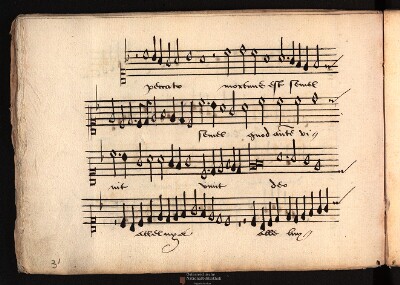 peccato mortuus est semel
semel quod aute vi
uit viuit deo
alleluya alle luy
3